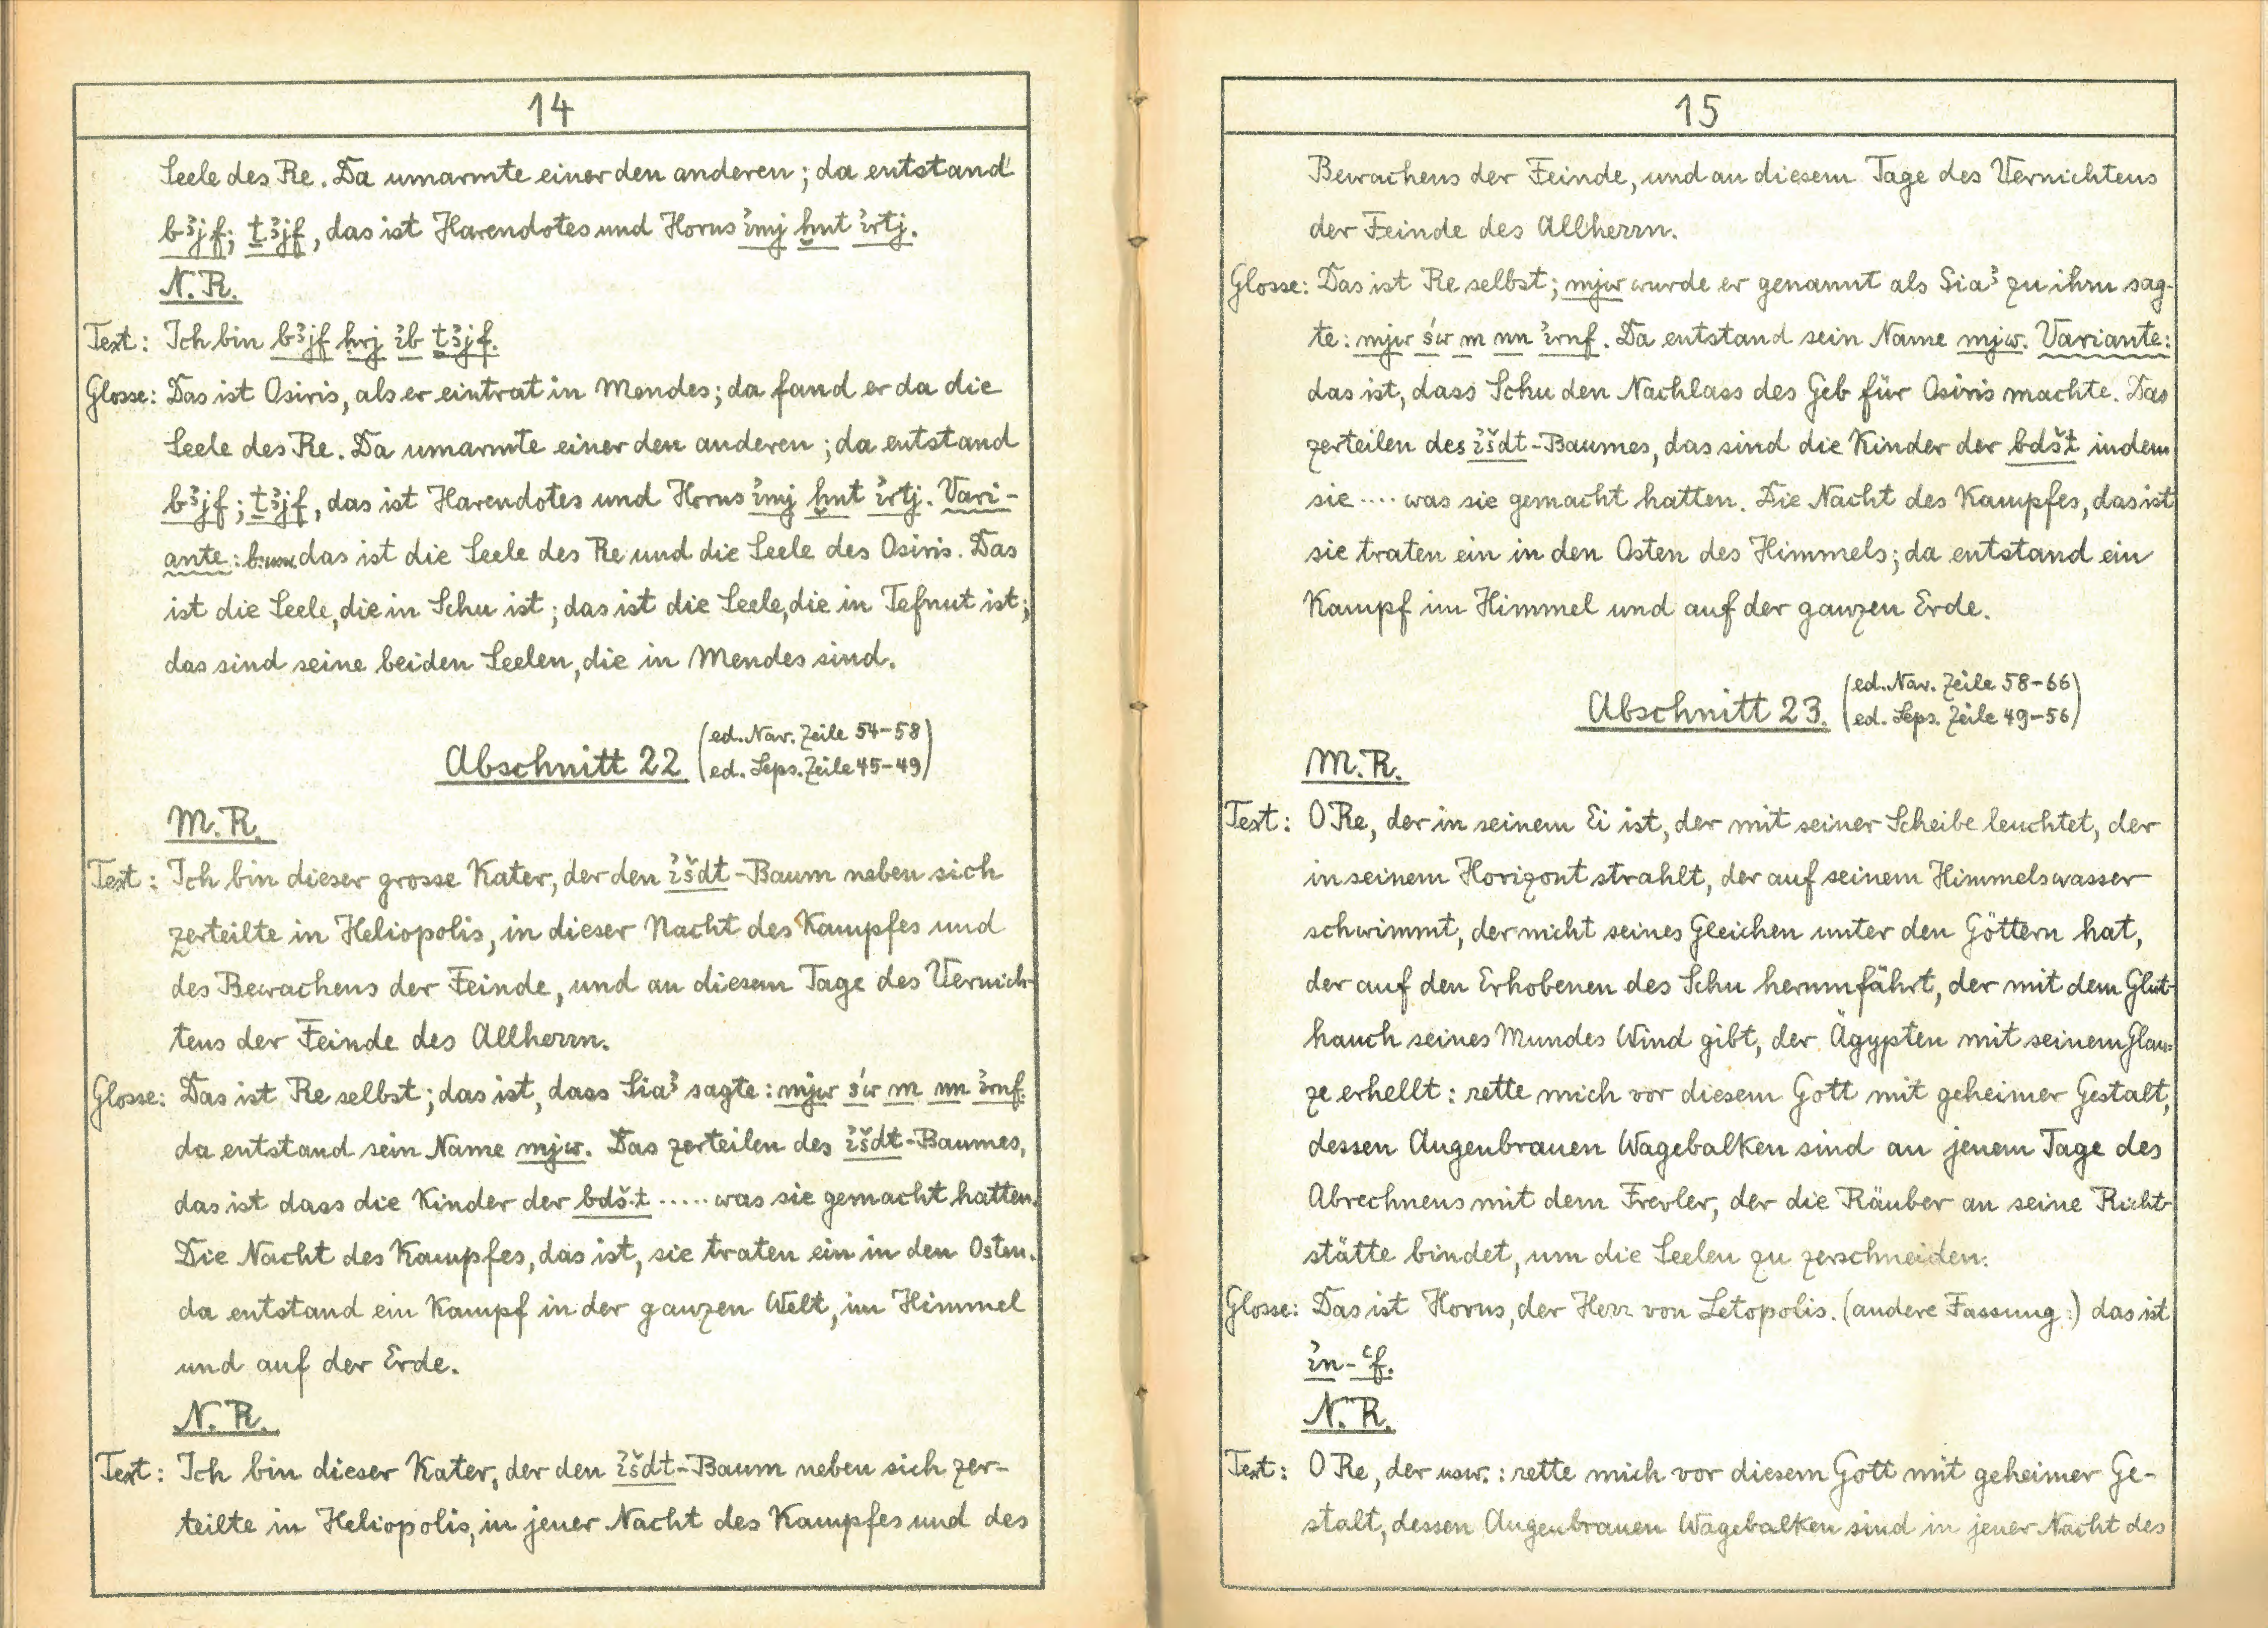 14
Seele des Re. Da umarmte einer den anderen; da entstand
bꜣjf; ṯꜣjf, das ist Harendotes und Horus ꞽmj ẖnt ꞽrtj.
N.R.
Text: Ich bin bꜣjf ḥrj ꞽb ṯꜣjf.
Glosse: Das ist Osiris, als er eintrat in Mendes; da fand er da die
Seele des Re. Da umarmte einer den anderen; da entstand
bꜣjf; ṯꜣjf, das ist Harendotes und Horus ꞽmj ẖnt ꞽrtj. Vari-
ante: b. usw. das ist die Seele des Re und die Seele des Osiris. Das
ist die Seele, die in Schu ist; das ist die Seele, die in Tefnut ist;
das sind seine beiden Seelen, die in Mendes sind.
Abschnitt 22. (ed. Nav. Zeile 54-58)
(ed. Leps. Zeile 45-49)
M.R.
Text: Ich bin dieser grosse Kater, der den ꞽšdt-Baum neben sich
zerteilte in Heliopolis, in dieser Nacht des Kampfes und
des Bewachens der Feinde, und an diesem Tage des Vernich-
tens der Feinde des Allherrn.
Glosse: Das ist Re selbst; das ist, dass Siaꜣ sagte: mjw św m nn ꞽrnf.
da entstand sein Name mjw. Das zerteilen des ꞽšdt-Baumes,
das ist dass die Kinder der bdš.t ..... was sie gemacht hatten.
Die Nacht des Kampfes, das ist, sie traten ein in den Osten.
da entstand ein Kampf in der ganzen Welt, im Himmel
und auf der Erde.
N.R.
Text: Ich bin dieser Kater, der den ꞽšdt-Baum neben sich zer-
teilte in Heliopolis, in jener Nacht des Kampfes und des
15
Bewachens der Feinde, und an diesem Tage des Vernichtens
der Feinde des Allherrn.
Glosse: Das ist Re selbst; mjw wurde er genannt als Siaꜣ zu ihm sag-
te: mjw św m nn ꞽrnf. Da entstand sein Name mjw. Variante:
das ist, dass Schu den Nachlass des Geb für Osiris machte. Das
zerteilen des ꞽšdt-Baumes, das sind die Kinder der bdšt indem
sie .... was sie gemacht hatten. Die Nacht des Kampfes, das ist
sie traten ein in den Osten des Himmels; da entstand ein
Kampf im Himmel und auf der ganzen Erde.
Abschnitt 23. (ed. Nav. Zeile 58-66)
(ed. Leps. Zeile 49-56)
M.R.
Text: O Re, der in seinem Ei ist, der mit seiner Scheibe leuchtet, der
in seinem Horizont strahlt, der auf seinem Himmelswasser
schwimmt, der nicht seines Gleichen unter den Göttern hat,
der auf den Erhobenen des Schu herumfährt, der mit dem Glut-
hauch seines Mundes Wind gibt, der Ägypten mit seinem Glan-
ze erhellt: rette mich vor diesem Gott mit geheimer Gestalt,
dessen Augenbrauen Wagebalken sind an jenem Tage des
Abrechnens mit dem Frevler, der die Räuber an seine Richt-
stätte bindet, um die Seelen zu zerschneiden.
Glosse: Das ist Horus, der Herr von Letopolis. (andere Fassung:) das ist
ꞽn-ꜥf.
N.R.
Text: O Re, der usw.: rette mich vor diesem Gott mit geheimer Ge-
stalt, dessen Augenbrauen Wagebalken sind in jener Nacht des